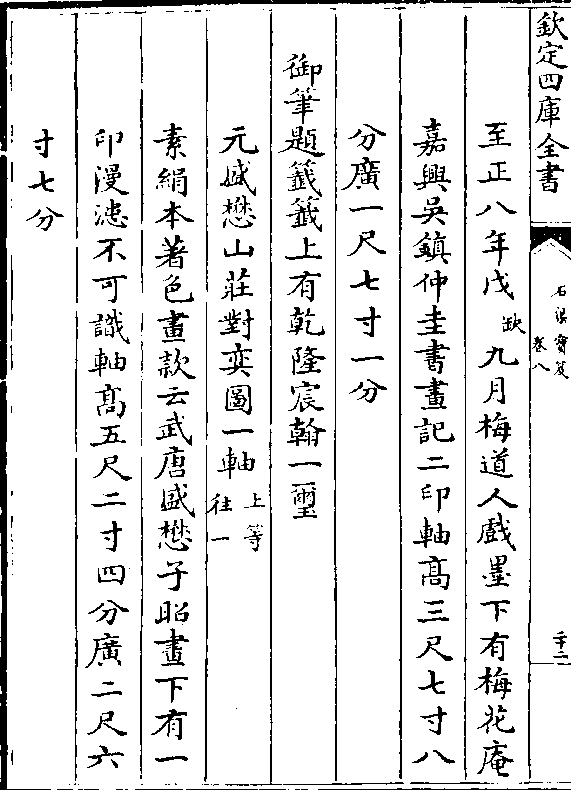 欽定四庫全書
石渠寶笈
卷八
二十二
至正八年戊缺九月梅道人戲墨下有梅花庵
嘉興吳鎮仲圭書畫記二印軸髙三尺七寸八
分廣一尺七寸一分
御筆題籤籤上有乾隆宸翰一璽
元盛懋山莊對奕圖一軸上等往一
素絹本著色畫款云武唐盛懋子昭畫下有一
印漫漶不可識軸髙五尺二寸四分廣二尺六
寸七分